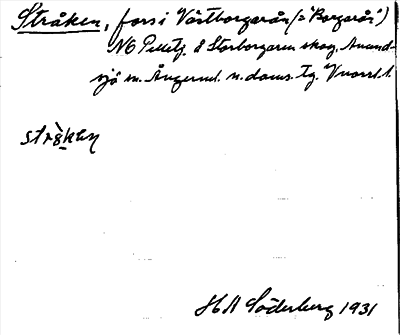 Stråken, fors i Västborgarån (= "Borgarån")
NO Pelletj. å Storborgaren skog, Anund-
sjö sn. Ångerml. n. doms. tg. V norrl. l.
stråken
H A Söderberg 1931